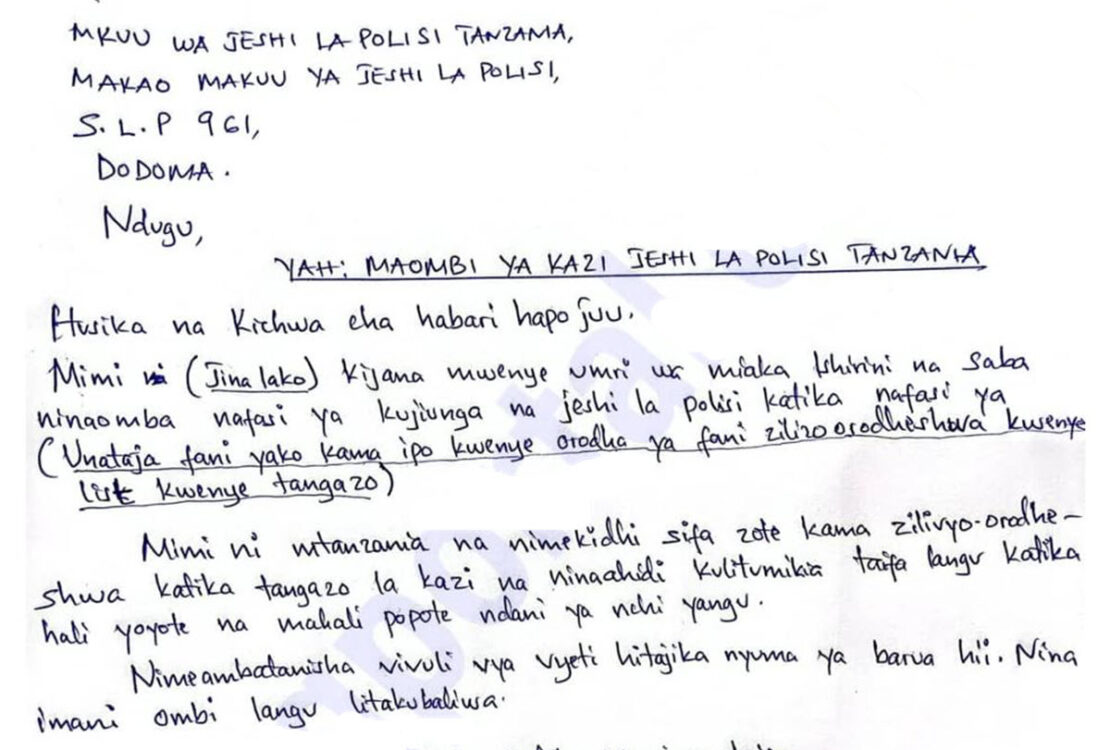 MKUU WA JESHI LA POLISI TANZANIA,
MAKAO MAKUU YA JESHI LA POLISI,
S.L.P 961,
DODOMA.
Ndugu,
YAH: MAOMBI YA KAZI JESHI LA POLISI TANZANIA
Husika na Kichwa cha habari hapo juu.
Mimi ni (Jina lako) kijana mwenye umri wa miaka Ishirini na Saba
ninaomba nafasi ya kujiunga na jeshi la polisi katika nafasi ya
(Unataja fani yako kama ipo kwenye orodha ya fani zilizoorodheshwa kwenye
list kwenye tangazo)
Mimi ni mtanzania na nimekidhi sifa zote kama zilivyo-orodhe-
shwa katika tangazo la kazi na ninaahidi kulitumikia taifa langu katika
hali yoyote na mahali popote ndani ya nchi yangu.
Nimeambatanisha vivuli vya vyeti hitajika nyuma ya barua hii. Nina
imani ombi langu litakubaliwa.